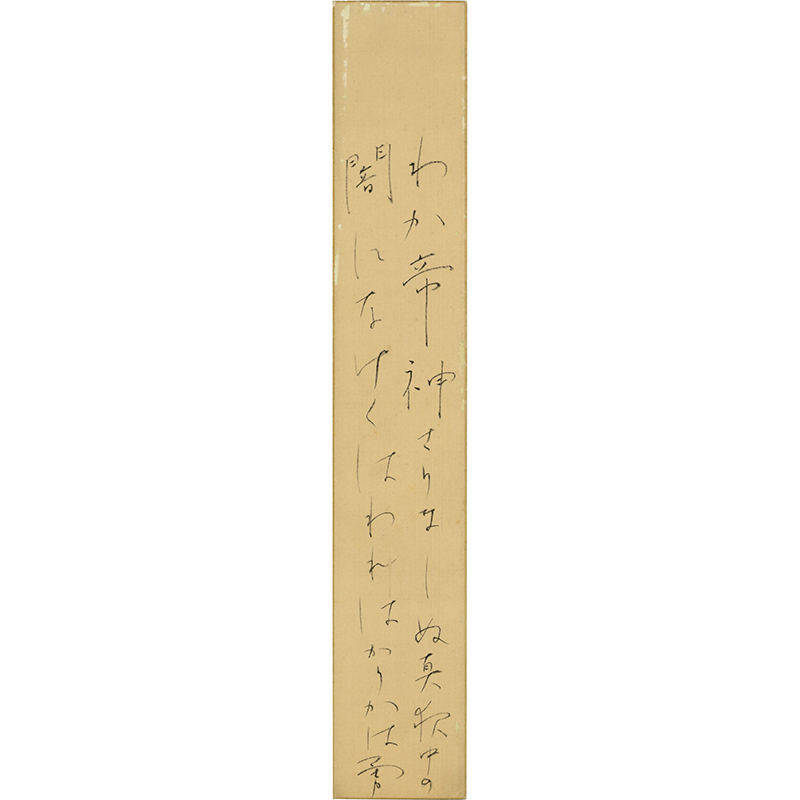 わか帝神さりましぬ真夜中の
闇になけくはわれはかりかは 勇